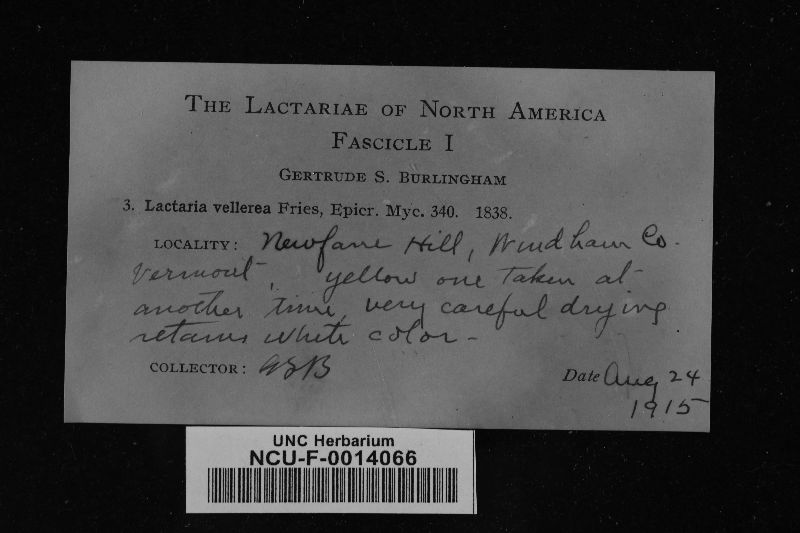 THE LACTARIAE OF NORTH AMERICA
FASCICLE I
GERTRUDE S. BURLINGHAM
3. Lactaria vellerea Fries, Epicr. Myc. 340. 1838.
LOCALITY: Newfane Hill, Windham Co.
Vermont, yellow one taken at
another time, very careful drying
retains white color -
COLLECTOR: GSB
Date Aug 24
1915
UNC Herbarium
NCU-F-0014066